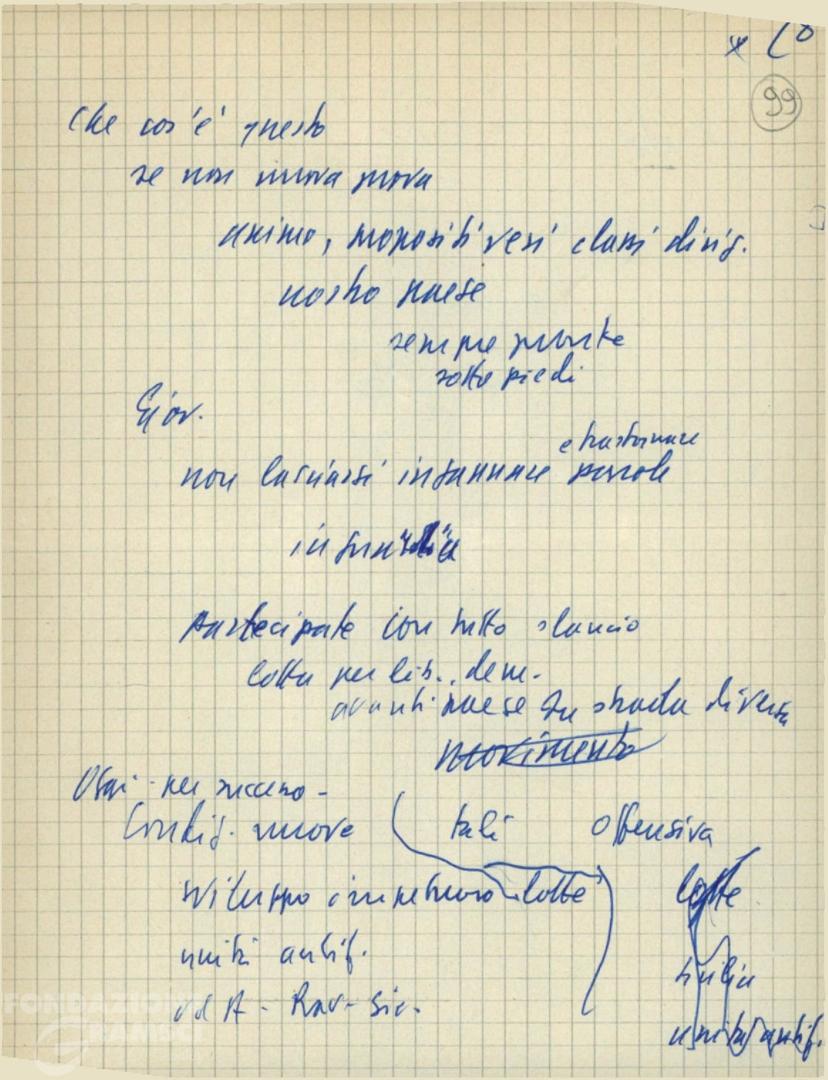 99
Che cos'è questo
se non nuova prova
animo, propositi veri classi dirig.
nostro paese
sempre pronte
sotto piedi
Giov.
non lasciarsi ingannare parole
e trasformare
Partecipate con tutto slancio
lotta per lib., dem.
avanti paese su strada diversa
movimento
Oggi - per successo -
Condiz. nuove tali Offensiva
sviluppo impetuoso lotte lotte
unità antif.
Sicilia
R. A - Rav - Sic.
unità antif.
FONDAZIONE
GRAMSCI